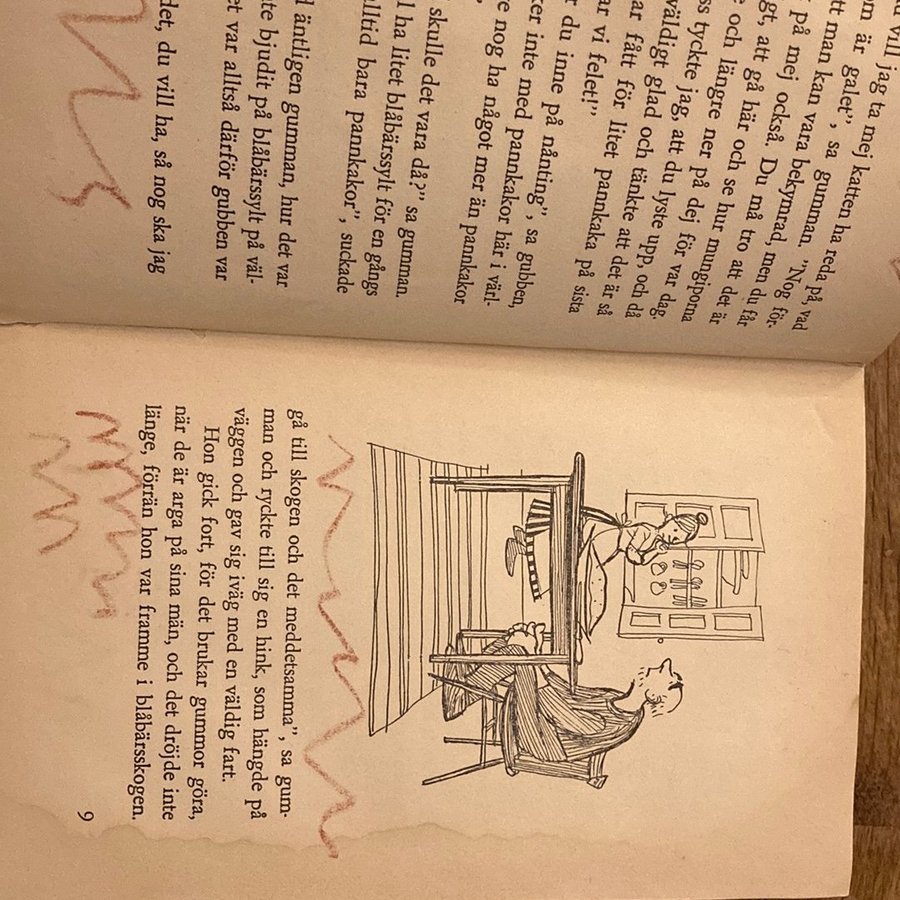 u vill jag ta mej katten ha reda på, vad
om är galet", sa gumman. "Nog för-
tt man kan vara bekymrad, men du får
på mej också. Du må tro att det är
gt, att gå här och se hur mungiporna
e och längre ner på dej för var dag.
ss tyckte jag, att du lyste upp, och då
väldigt glad och tänkte att det är så
ar fått för litet pannkaka på sista
ar vi felet!"
r du inne på nånting", sa gubben,
er inte med pannkakor här i värl-
re nog ha något mer än pannkakor
skulle det vara då?" sa gumman.
l ha litet blåbärssylt för en gångs
alltid bara pannkakor", suckade
d äntligen gumman, hur det var
te bjudit på blåbärssylt på väl-
et var alltså därför gubben var
det, du vill ha, så nog ska jag
gå till skogen och det meddetsamma", sa gum-
man och ryckte till sig en hink, som hängde på
väggen och gav sig iväg med en väldig fart.
Hon gick fort, för det brukar gummor göra,
när de är arga på sina män, och det dröjde inte
länge, förrän hon var framme i blåbärsskogen.
9